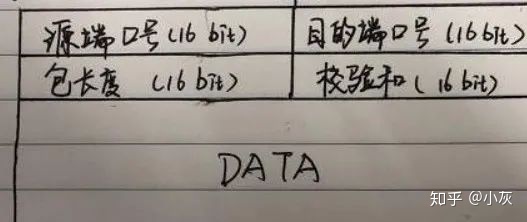 源端口号(16 bit) 目的端口号(16 bit)
包长度 (16 bit) 校验和( 16 bit)
DATA
知乎 @小灰